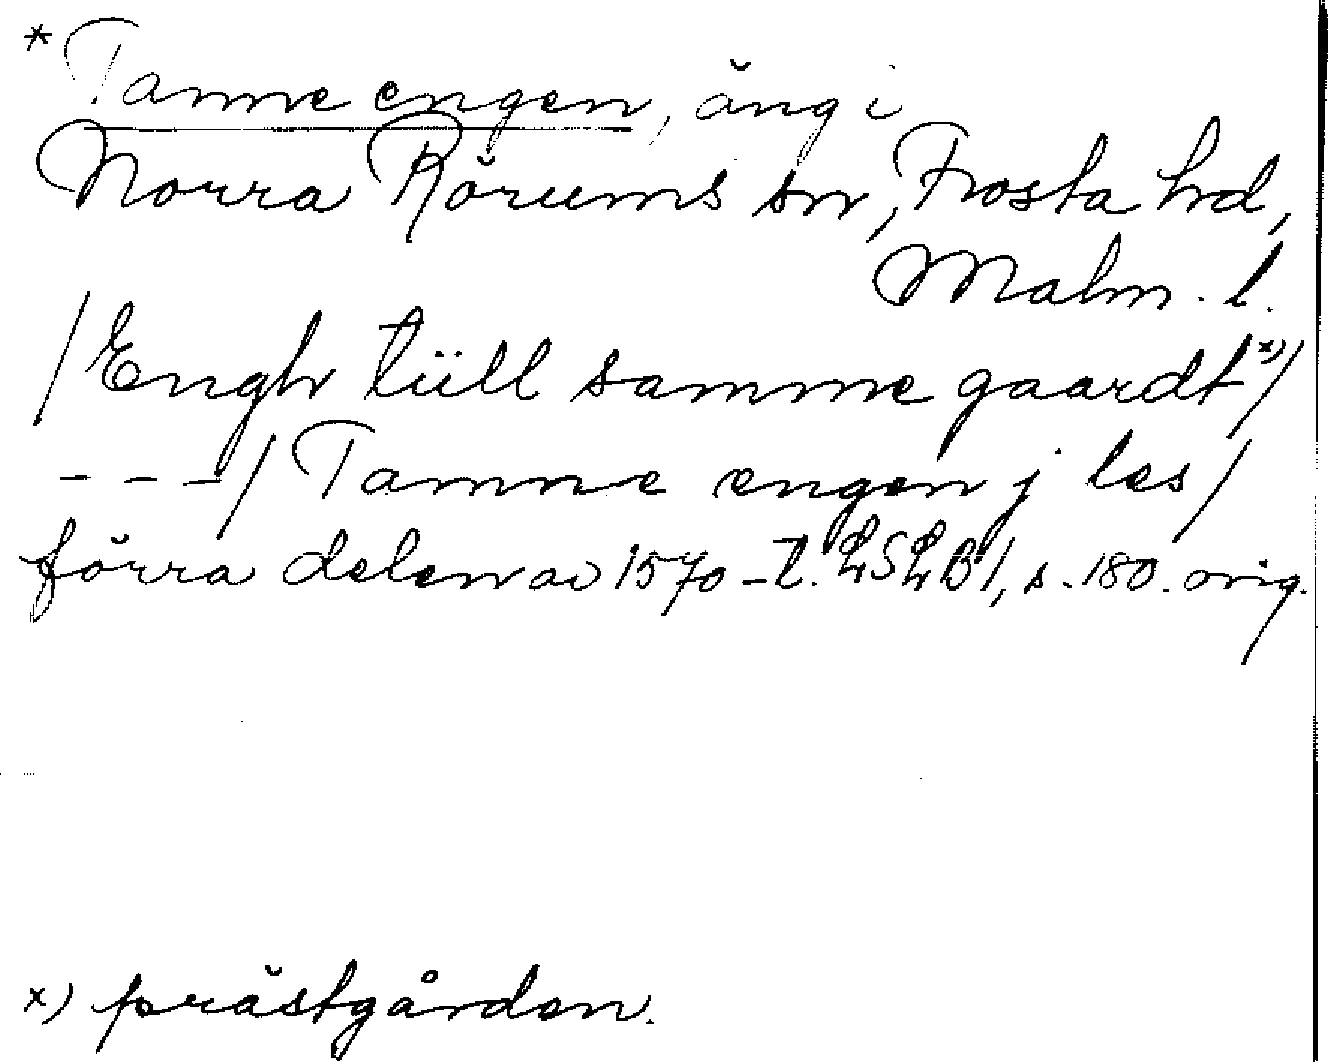 * Tamme engen, äng i
Norra Rörums sn, Frosta hd,
Malm. l.
/Engh tüll samme gaardt x)/
- - -/ Tamme engen j les/
förra delen av 1570-t. LSLB 1, s. 180. orig.
x) prästgården.